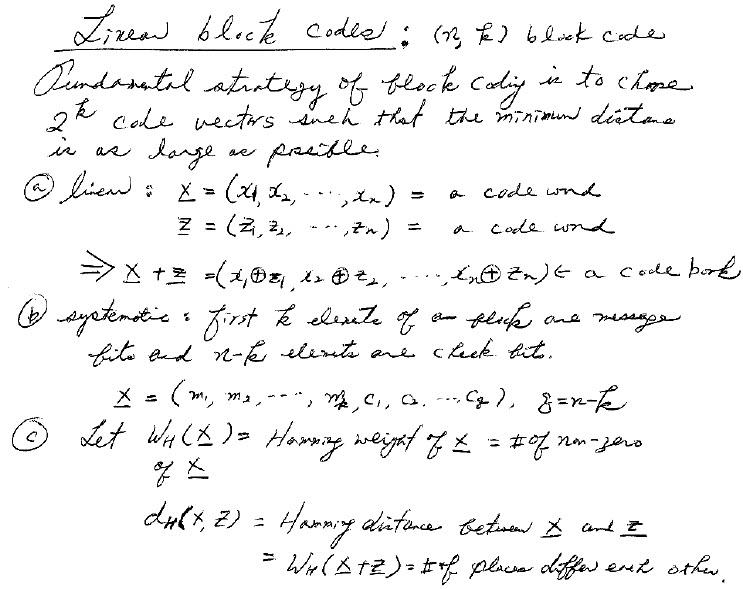 Linear block codes : (n, k) block code
Fundamental strategy of block coding is to choose
2^k code vectors such that the minimum distance
is as large as possible.
(a) linear : X = (x1, x2, ···, xn) = a code word
Z = (z1, z2, ···, zn) = a code word
⇒ X + Z = (x1⊕z1, x2⊕z2, ····, xn⊕zn) ∈ a code book
(b) systematic : first k elements of a block are message
bits and n-k elements are check bits.
X = (m1, m2, ---, mk, c1, c2, ... cq), q=n-k
(c) Let WH(X) = Hamming weight of X = # of non-zero
of X
dH(X, Z) = Hamming distance between X and Z
= WH(X+Z) = # of places differ each other.